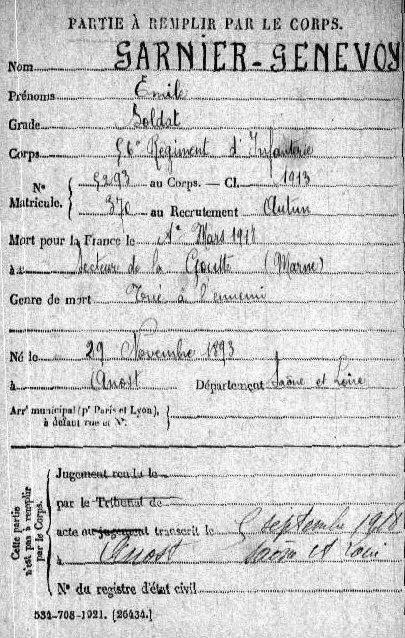 PARTIE À REMPLIR PAR LE CORPS.
Nom GARNIER-GENEVOY
Prénoms Emile
Grade Soldat
Corps 56e Régiment d'Infanterie
N° Matricule. { 5293 au Corps. — Cl. 1913
370 au Recrutement Autun
Mort pour la France le 1er Mars 1918
à Secteur de la (Marne)
Genre de mort Tué à l'ennemi
Né le 29 Novembre 1893
à Anost Département Saône et Loire
Arrt municipal (pr Paris et Lyon),
à défaut rue et N°.
Cette partie n'est pas à remplir par le Corps.
Jugement rendu le
par le Tribunal de
acte ou jugement transcrit le 5 septembre 1918
à Anost Saone et Loire
N° du registre d'état civil
534-708-1921. [26434.]